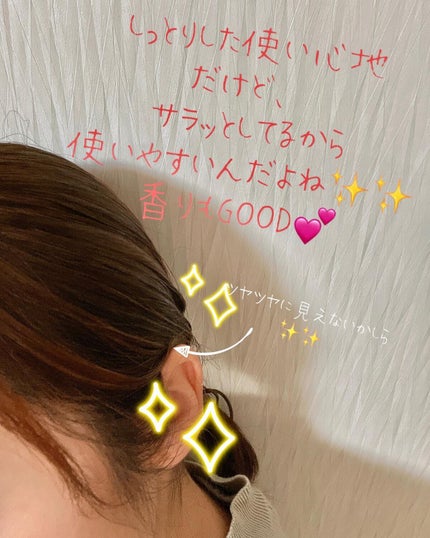 しっとりした使い心地
だけど、
サラッとしてるから
使いやすいんだよね✨✨
香りもGOOD💕
ツヤツヤに見えないかしら
✨✨